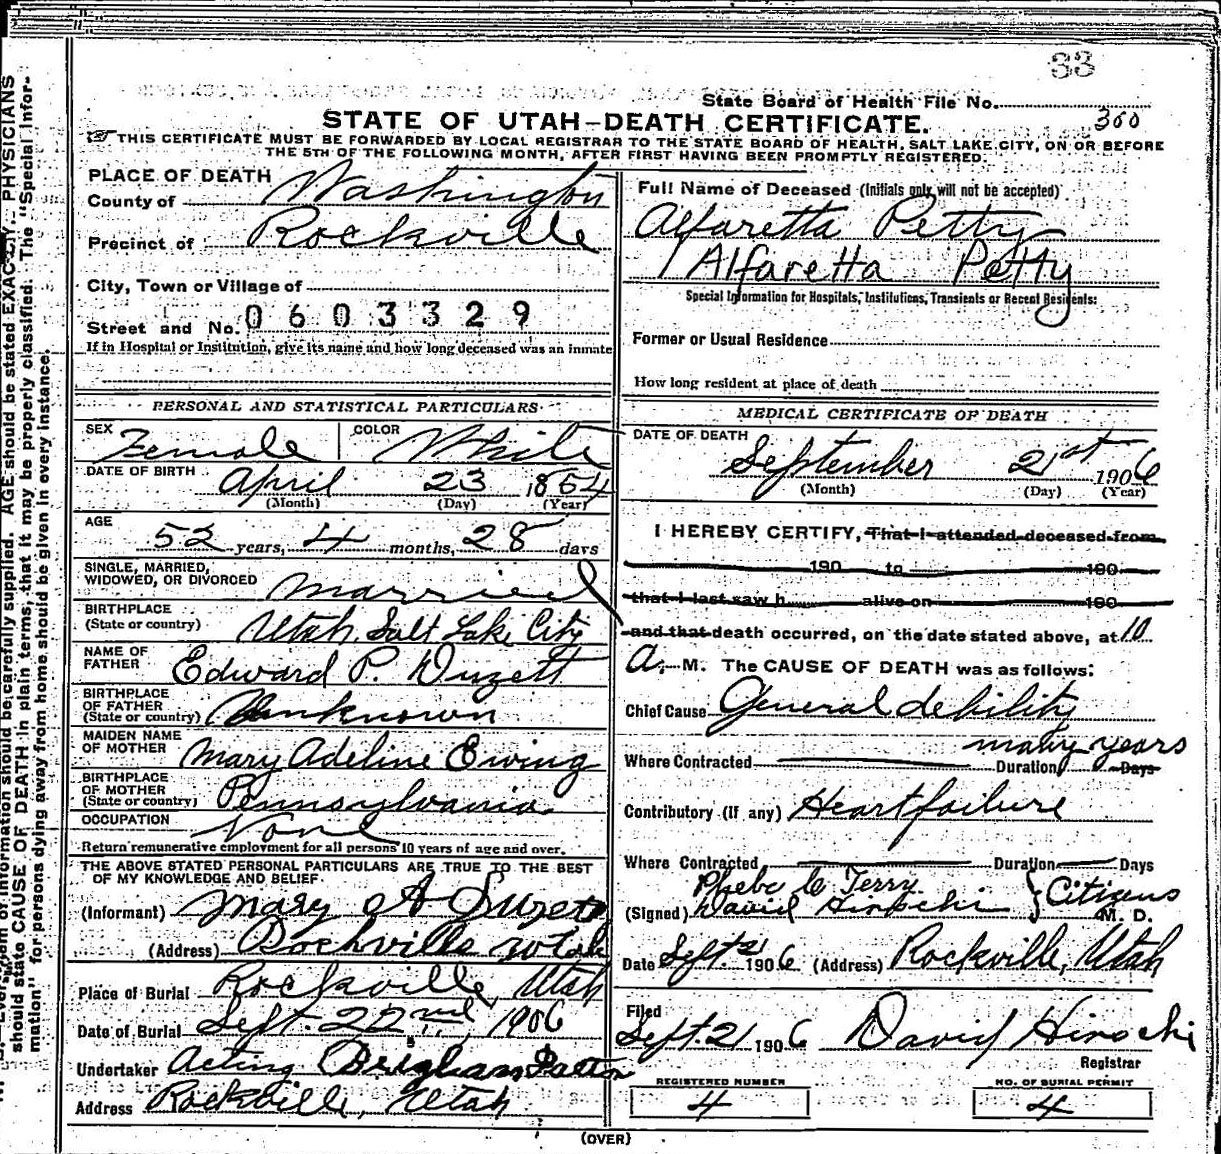 33
State Board of Health File No.
360
STATE OF UTAH–DEATH CERTIFICATE.
THIS CERTIFICATE MUST BE FORWARDED BY LOCAL REGISTRAR TO THE STATE BOARD OF HEALTH, SALT LAKE CITY, ON OR BEFORE
THE 5TH OF THE FOLLOWING MONTH, AFTER FIRST HAVING BEEN PROMPTLY REGISTERED.
PLACE OF DEATH
County of Washington
Precinct of Rockville
City, Town or Village of
Street and No. 0603329
If in Hospital or Institution, give its name and how long deceased was an inmate
PERSONAL AND STATISTICAL PARTICULARS
SEX Female COLOR White
DATE OF BIRTH April 23 1854
(Month) (Day) (Year)
AGE
52 years, 4 months, 28 days
SINGLE, MARRIED,
WIDOWED, OR DIVORCED married
BIRTHPLACE
(State or country) Utah, Salt Lake City
NAME OF
FATHER Edward P. Duzett
BIRTHPLACE
OF FATHER
(State or country) Unknown
MAIDEN NAME
OF MOTHER Mary Adeline Ewing
BIRTHPLACE
OF MOTHER
(State or country) Pennsylvania
OCCUPATION None
Return remunerative employment for all persons 10 years of age and over.
THE ABOVE STATED PERSONAL PARTICULARS ARE TRUE TO THE BEST
OF MY KNOWLEDGE AND BELIEF.
(Informant) Mary A Duzett
(Address) Rockville Utah
Place of Burial Rockville, Utah
Date of Burial Sept. 22nd, 1906
Undertaker Acting Brigham
Address Rockville, Utah
Full Name of Deceased (Initials only will not be accepted)
Alfaretta Petty
Alfaretta Petty
Special Information for Hospitals, Institutions, Transients or Recent Residents:
Former or Usual Residence
How long resident at place of death
MEDICAL CERTIFICATE OF DEATH
DATE OF DEATH
September 21st 1906
(Month) (Day) (Year)
I HEREBY CERTIFY, That I attended deceased from
190 to 190
that I last saw h alive on 190
and that death occurred, on the date stated above, at 10
A. M. The CAUSE OF DEATH was as follows:
Chief Cause General debility
many years
Where Contracted Duration Days
Contributory (if any) Heart failure
Where Contracted Duration Days
Phebe C Terry
(Signed) David Hirschi } Citizens
M. D.
Date Sept. 21 1906 (Address) Rockville, Utah
Filed
Sept. 21 1906 David Hirschi
Registrar
REGISTERED NUMBER
4
NO. OF BURIAL PERMIT
4
(OVER)
AGE should be stated EXACTLY. PHYSICIANS
should state CAUSE OF DEATH in plain terms, that it may be properly classified. The "Special Infor-
mation" for persons dying away from home should be given in every instance.